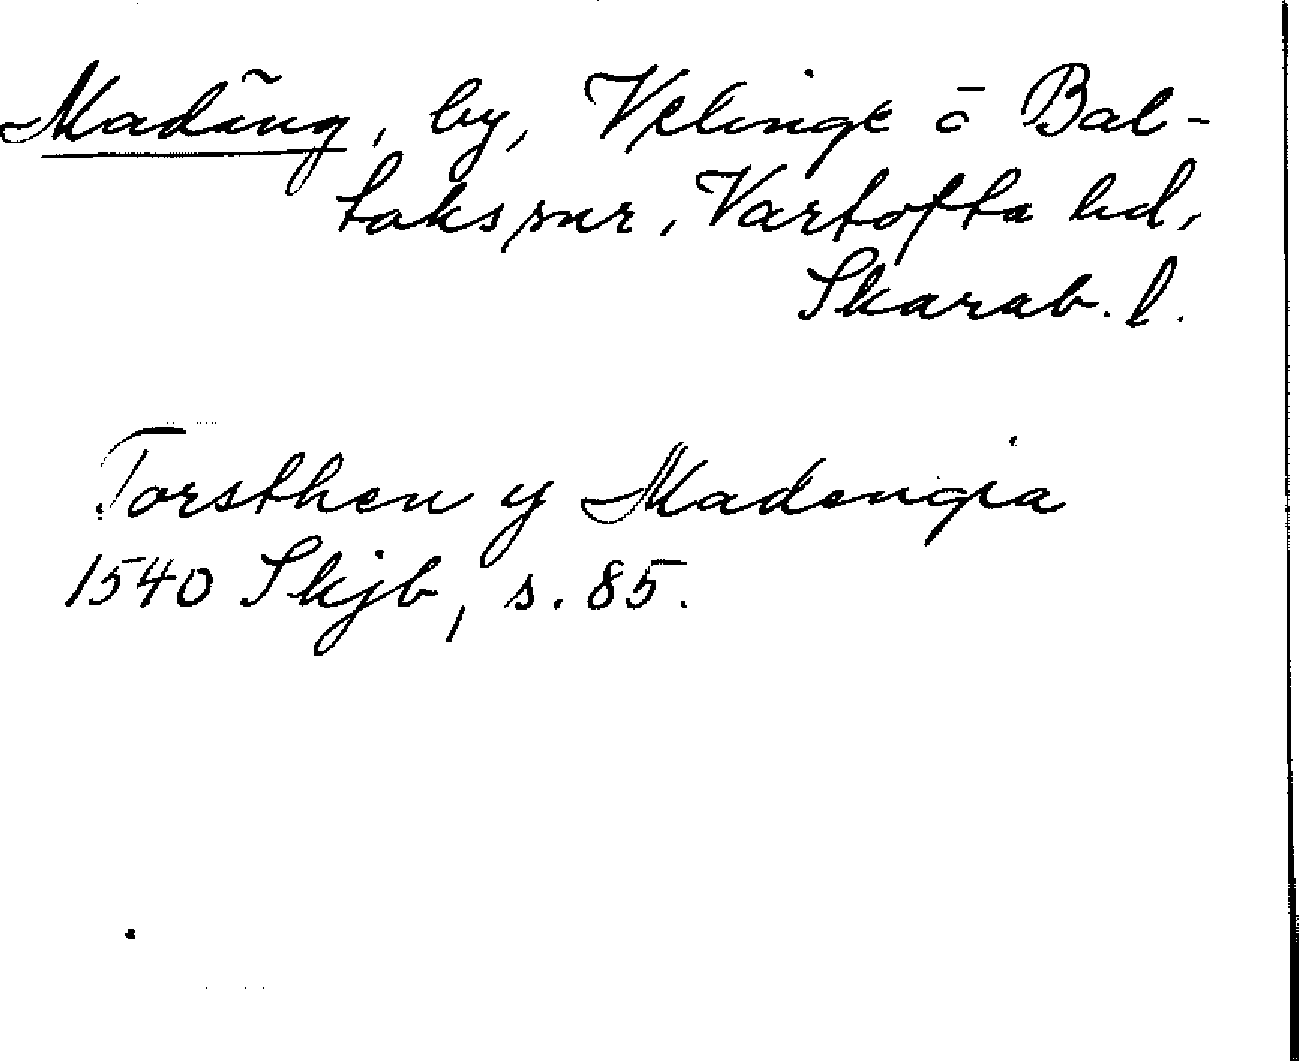 Madäng, by, Velinge o Bal-
taks snr, Vartofta hd,
Skarab. l.
Torsthen y Madengia
1540 Skjb, s. 85.